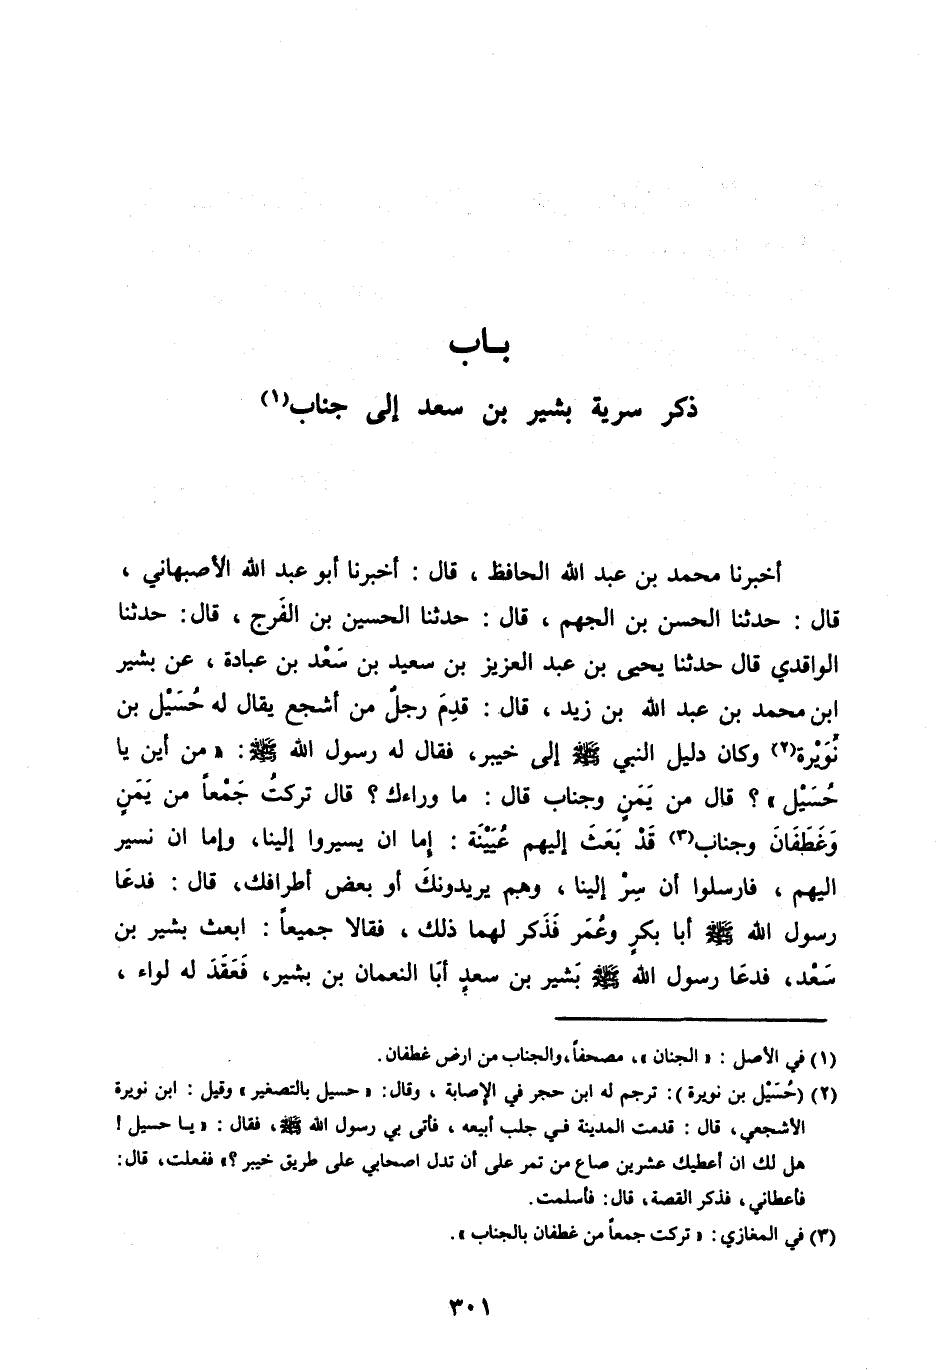 باب
ذكر سرية بشير بن سعد إلى جناب(١)
أخبرنا محمد بن عبد الله الحافظ ، قال : أخبرنا أبو عبد الله الأصبهاني ،
قال : حدثنا الحسن بن الجهم ، قال : حدثنا الحسين بن الفَرج ، قال: حدثنا
الواقدي قال حدثنا يحيى بن عبد العزيز بن سعيد بن سَعْد بن عبادة ، عن بشير
ابن محمد بن عبد الله بن زيد ، قال : قدِمَ رجلٌ من أشجع يقال له حُسَيْل بن
نُوَيْرة(٢) وكان دليل النبي ﷺ إلى خيبر، فقال له رسول الله ﷺ: « من أين يا
حُسَيْل » ؟ قال من يَمَنٍ وجناب قال : ما وراءك ؟ قال تركتُ جَمْعاً من يَمَنٍ
وَغَطَفَانَ وجناب(٣) قَدْ بَعَثَ إليهم عُيَيْنَة : إما ان يسيروا إلينا، وإما ان نسير
اليهم ، فارسلوا أن سِرْ إلينا ، وهم يريدونكَ أو بعض أطرافك، قال : فدعَا
رسول الله ﷺ أبا بكرٍ وعُمَر فَذَكر لهما ذلك ، فقالا جميعاً : ابعث بشير بن
سَعْد، فدعَا رسول الله ﷺ بَشير بن سعدٍ أبَا النعمان بن بشير، فَعَقَدَ له لواء ،
(١) في الأصل : « الجنان »، مصحفاً، والجناب من ارض غطفان.
(٢) (حُسَيْل بن نويرة ): ترجم له ابن حجر في الإصابة ، وقال: « حسيل بالتصغير » وقيل : ابن نويرة
الأشجعي، قال : قدمت المدينة في جلب أبيعه ، فأتى بي رسول الله ﷺ، فقال : « يا حسيل !
هل لك ان أعطيك عشرين صاع من تمر على أن تدل اصحابي على طريق خيبر ؟» ففعلت، قال:
فأعطاني، فذكر القصة، قال: فأسلمت.
(٣) في المغازي: « تركت جمعاً من غطفان بالجناب ».
٣٠١